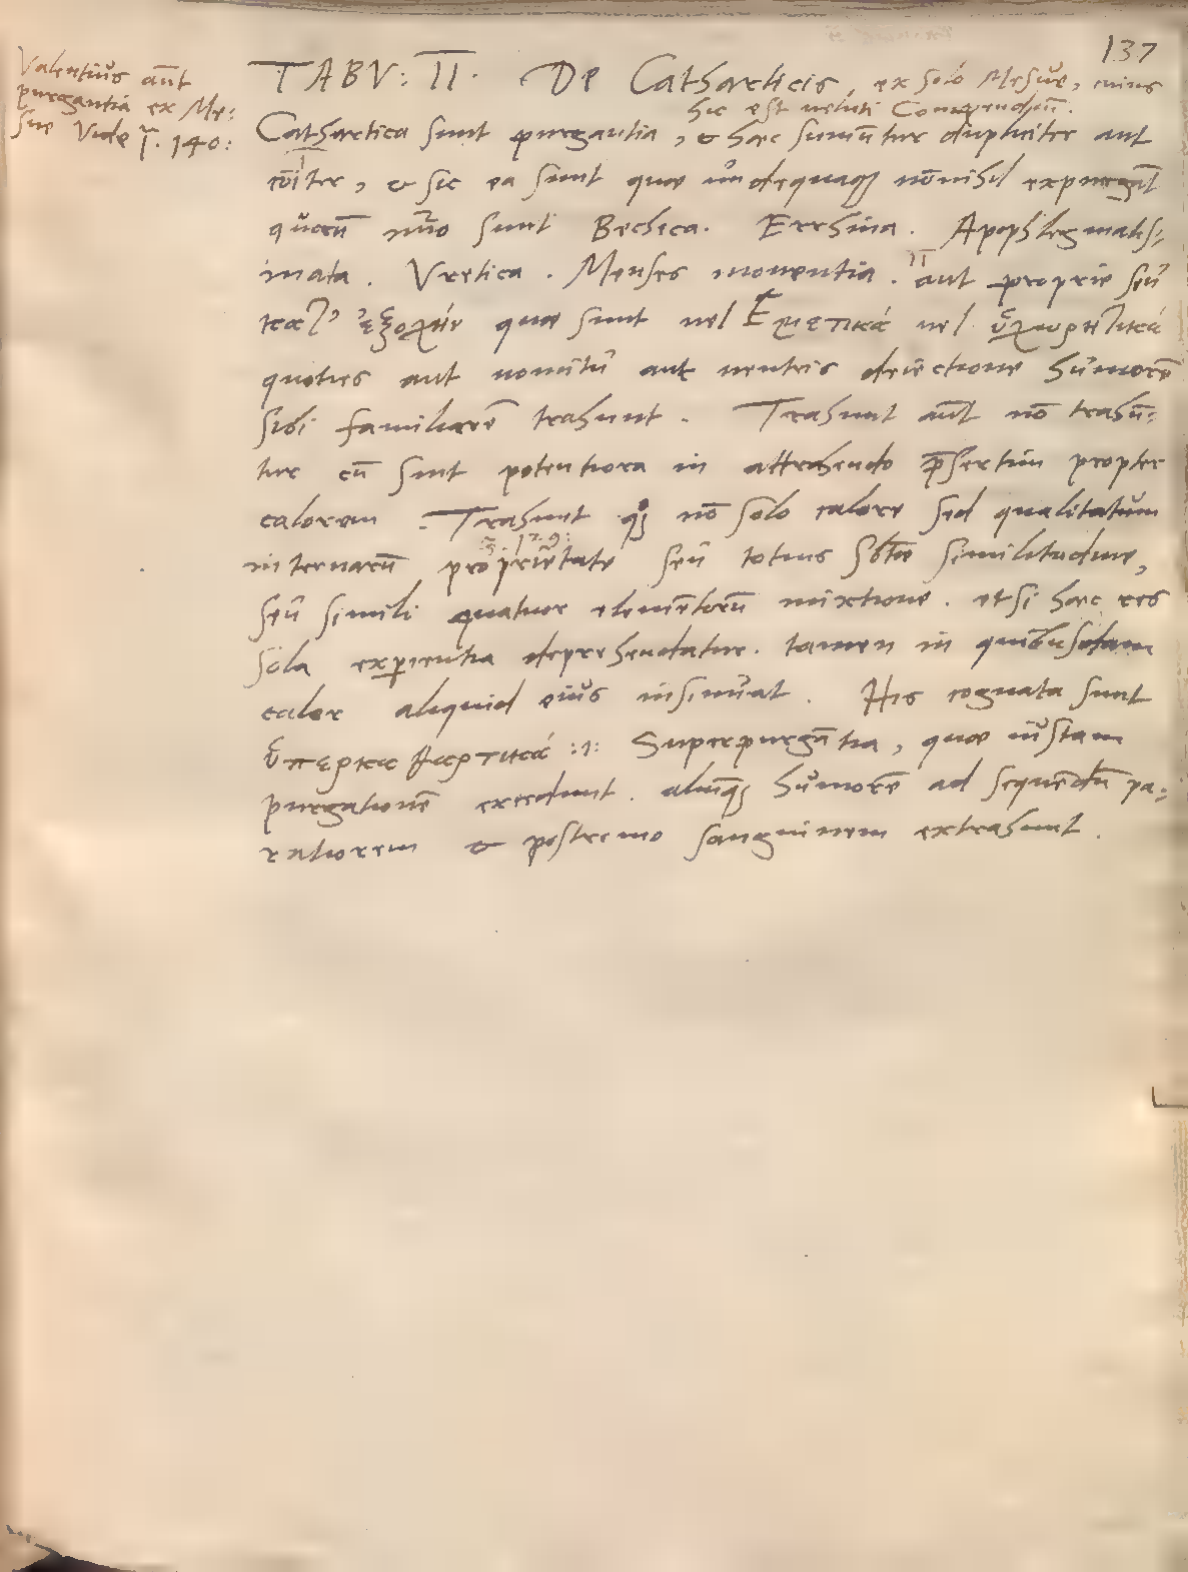 137
Valentius aūt
purgantia ex Me:
sue Vide T. 140:
TABV: II. De Catharticis, ex solo Mesue, cuius
hic est veluti Compendiū.
Cathartica sunt purgantia, & haec sumūtur dupliciter aut
I
cōīter, & sic ea sunt quae ūndequaq; nōnihil expurgāt
quorū nūo sunt Bechica. Errhina. Apophlegmatis:
mata. Vretica. Menses moventia.
II
aut proprie seu
quae sunt vel Εμετικά vel ὑποχωρητικά
quoties aut vomitū aut ventris deiectione humorē
sibi familiarē trahunt. Trahunt aūt nō trahū:
tur cū sint potentiora in attrahendo p̄sertim propter
calorem. Trahunt q; nō solo calore sed qualitatum
internarū proprietate seu totius sbtae similitudine,
seu simili quatuor elemētorū mixtione. etsi haec res
sola experientia deprehendatur. tamen in quibusdam
calor aliquid eius insinuat. His cognata sunt
ὑπερκαθαρτικά :i: Superpurgātia, quae iustam
purgationē excedunt. aliūq; humorē ad sequēdū pa:
ratiorem & postremo sanguinem extrahunt.